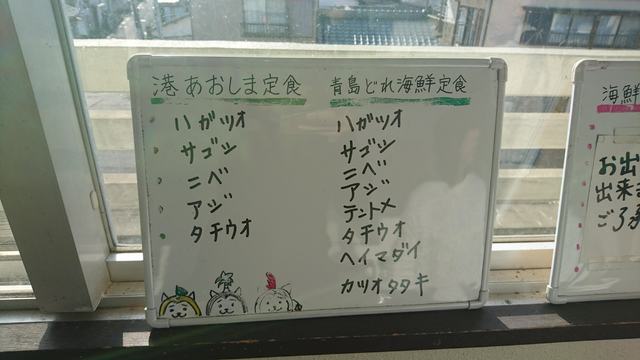 港 あおしま定食
ハガツオ
サゴシ
ニベ
アジ
タチウオ
青島どれ海鮮定食
ハガツオ
サゴシ
ニベ
アジ
テントメ
タチウオ
ヘイマダイ
カツオタタキ
海鮮
お出
出来
ご了承